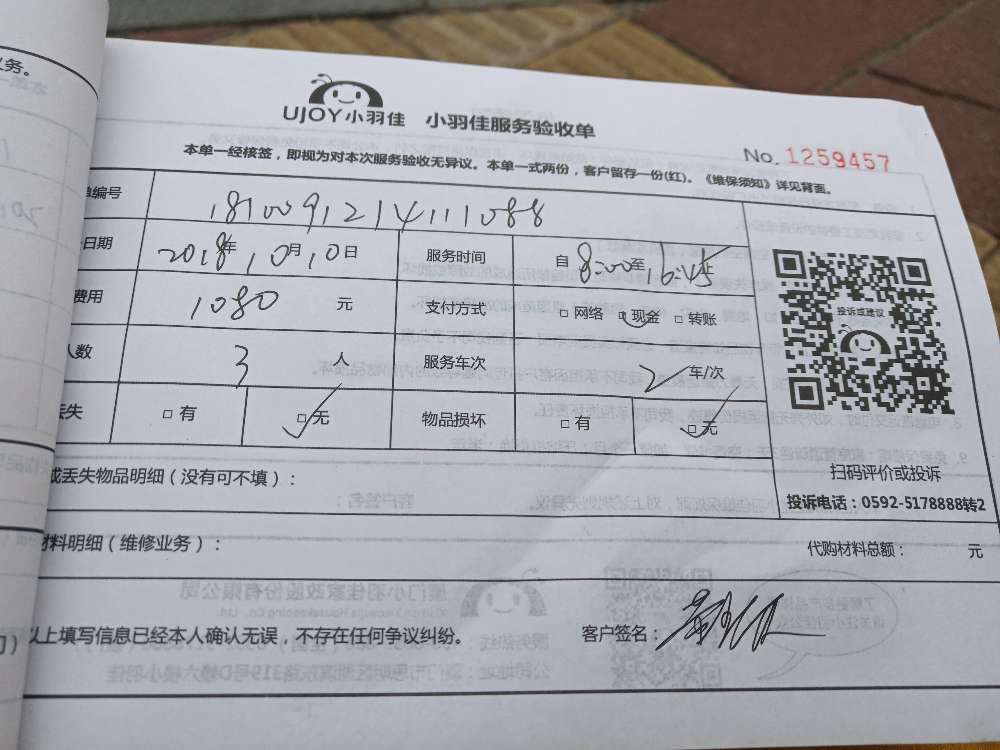 义务。
UJOY小羽佳 小羽佳服务验收单
No. 1259457
本单一经核签，即视为对本次服务验收无异议。本单一式两份，客户留存一份(红)。《维保须知》详见背面。
单编号 1810091214111088
日期 2018年10月10日 服务时间 自8:00至16:45止
费用 1080 元 支付方式 □ 网络 □ 现金 □ 转账
人数 3 人 服务车次 2 车/次
丢失 □ 有 □ 无 物品损坏 □ 有 □ 无
投诉或建议
扫码评价或投诉
投诉电话：0592-5178888转2
或丢失物品明细（没有可不填）：
材料明细（维修业务）： 代购材料总额： 元
以上填写信息已经本人确认无误，不存在任何争议纠纷。 客户签名：